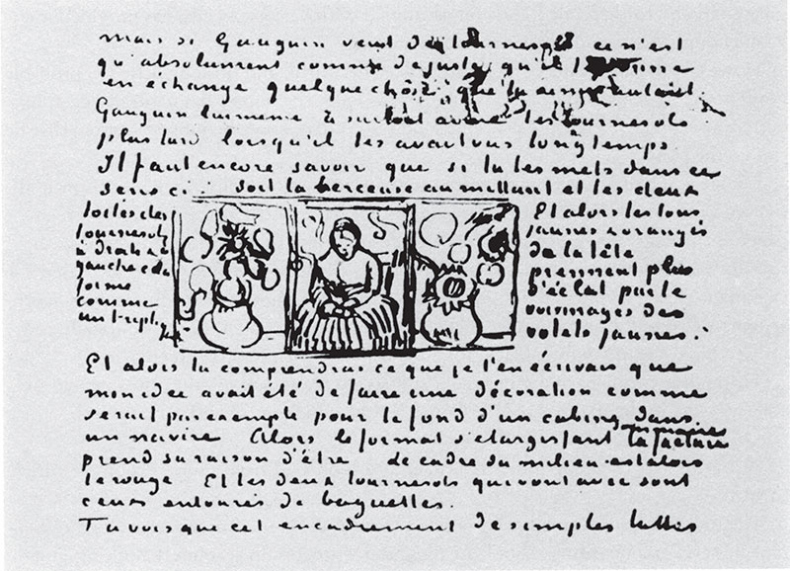 mais si Gauguin veut des tournesols ce n'est
qu'absolument comme de juste qu'il te
en échange quelque chose que tu aimes autant.
Gauguin lui meme a surtout aimé les tournesols
plus tard lorsqu'il les avait vus longtemps.
Il faut encore savoir que si tu les mets dans ce
sens ci : soit la berceuse au millieu et les deux
toiles des
tournesols
à droite et à
gauche cela
forme
comme
un triptique
Et alors les tons
jaunes & orangés
de la tête
prennent plus
d'éclat par le
voisinages des
volets jaunes.
Et alors tu comprendras ce que je t'en écrivais que
mon idee avait été de faire une décoration comme
serait par exemple pour le fond d'un cabine dans
un navire Alors le format s'élargissant la facture
sommaire
prend sa raison d'être. le cadre du milieu est alors
le rouge Et les deux tournesols qui vont avec sont
ceux entourés de baguettes.
Tu vois que cet encadrement de simples lattes